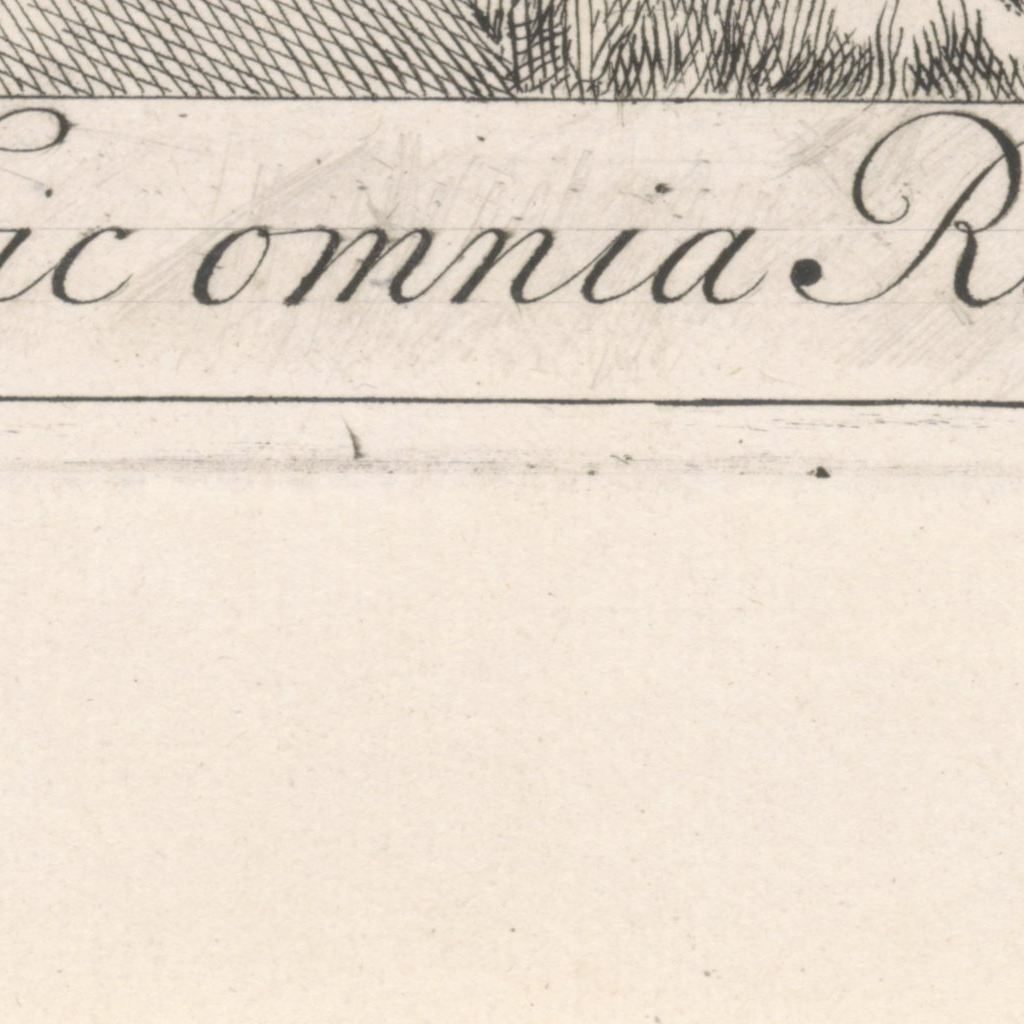 ic omnia. R